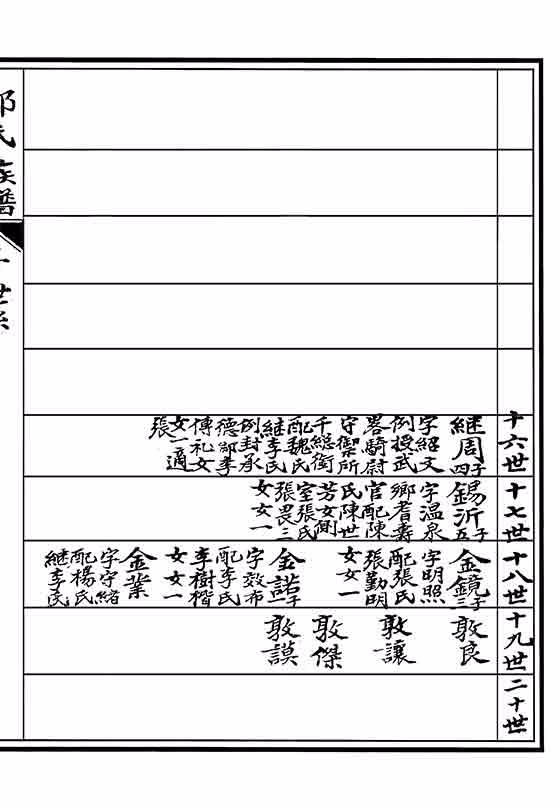 十六世
継周 子四
字紹文
例授武
畧騎尉
守禦所
千総銜
配魏氏
継李氏
例封承
德郎李
傳礼女
女一適
張
十七世
錫沂 子五
字温泉
鄉耆壽
官配陳
氏陳世
芳女側
室張氏
張畏三
女女一
十八世
金鏡 子三
字明照
配張氏
張勤明
女女一
金諾 子一
字效布
配李氏
李樹楷
女女一
金業
字守緒
配楊氏
継李氏
十九世
敦良
敦讓
敦傑
敦謨
二十世
氏族譜
世系